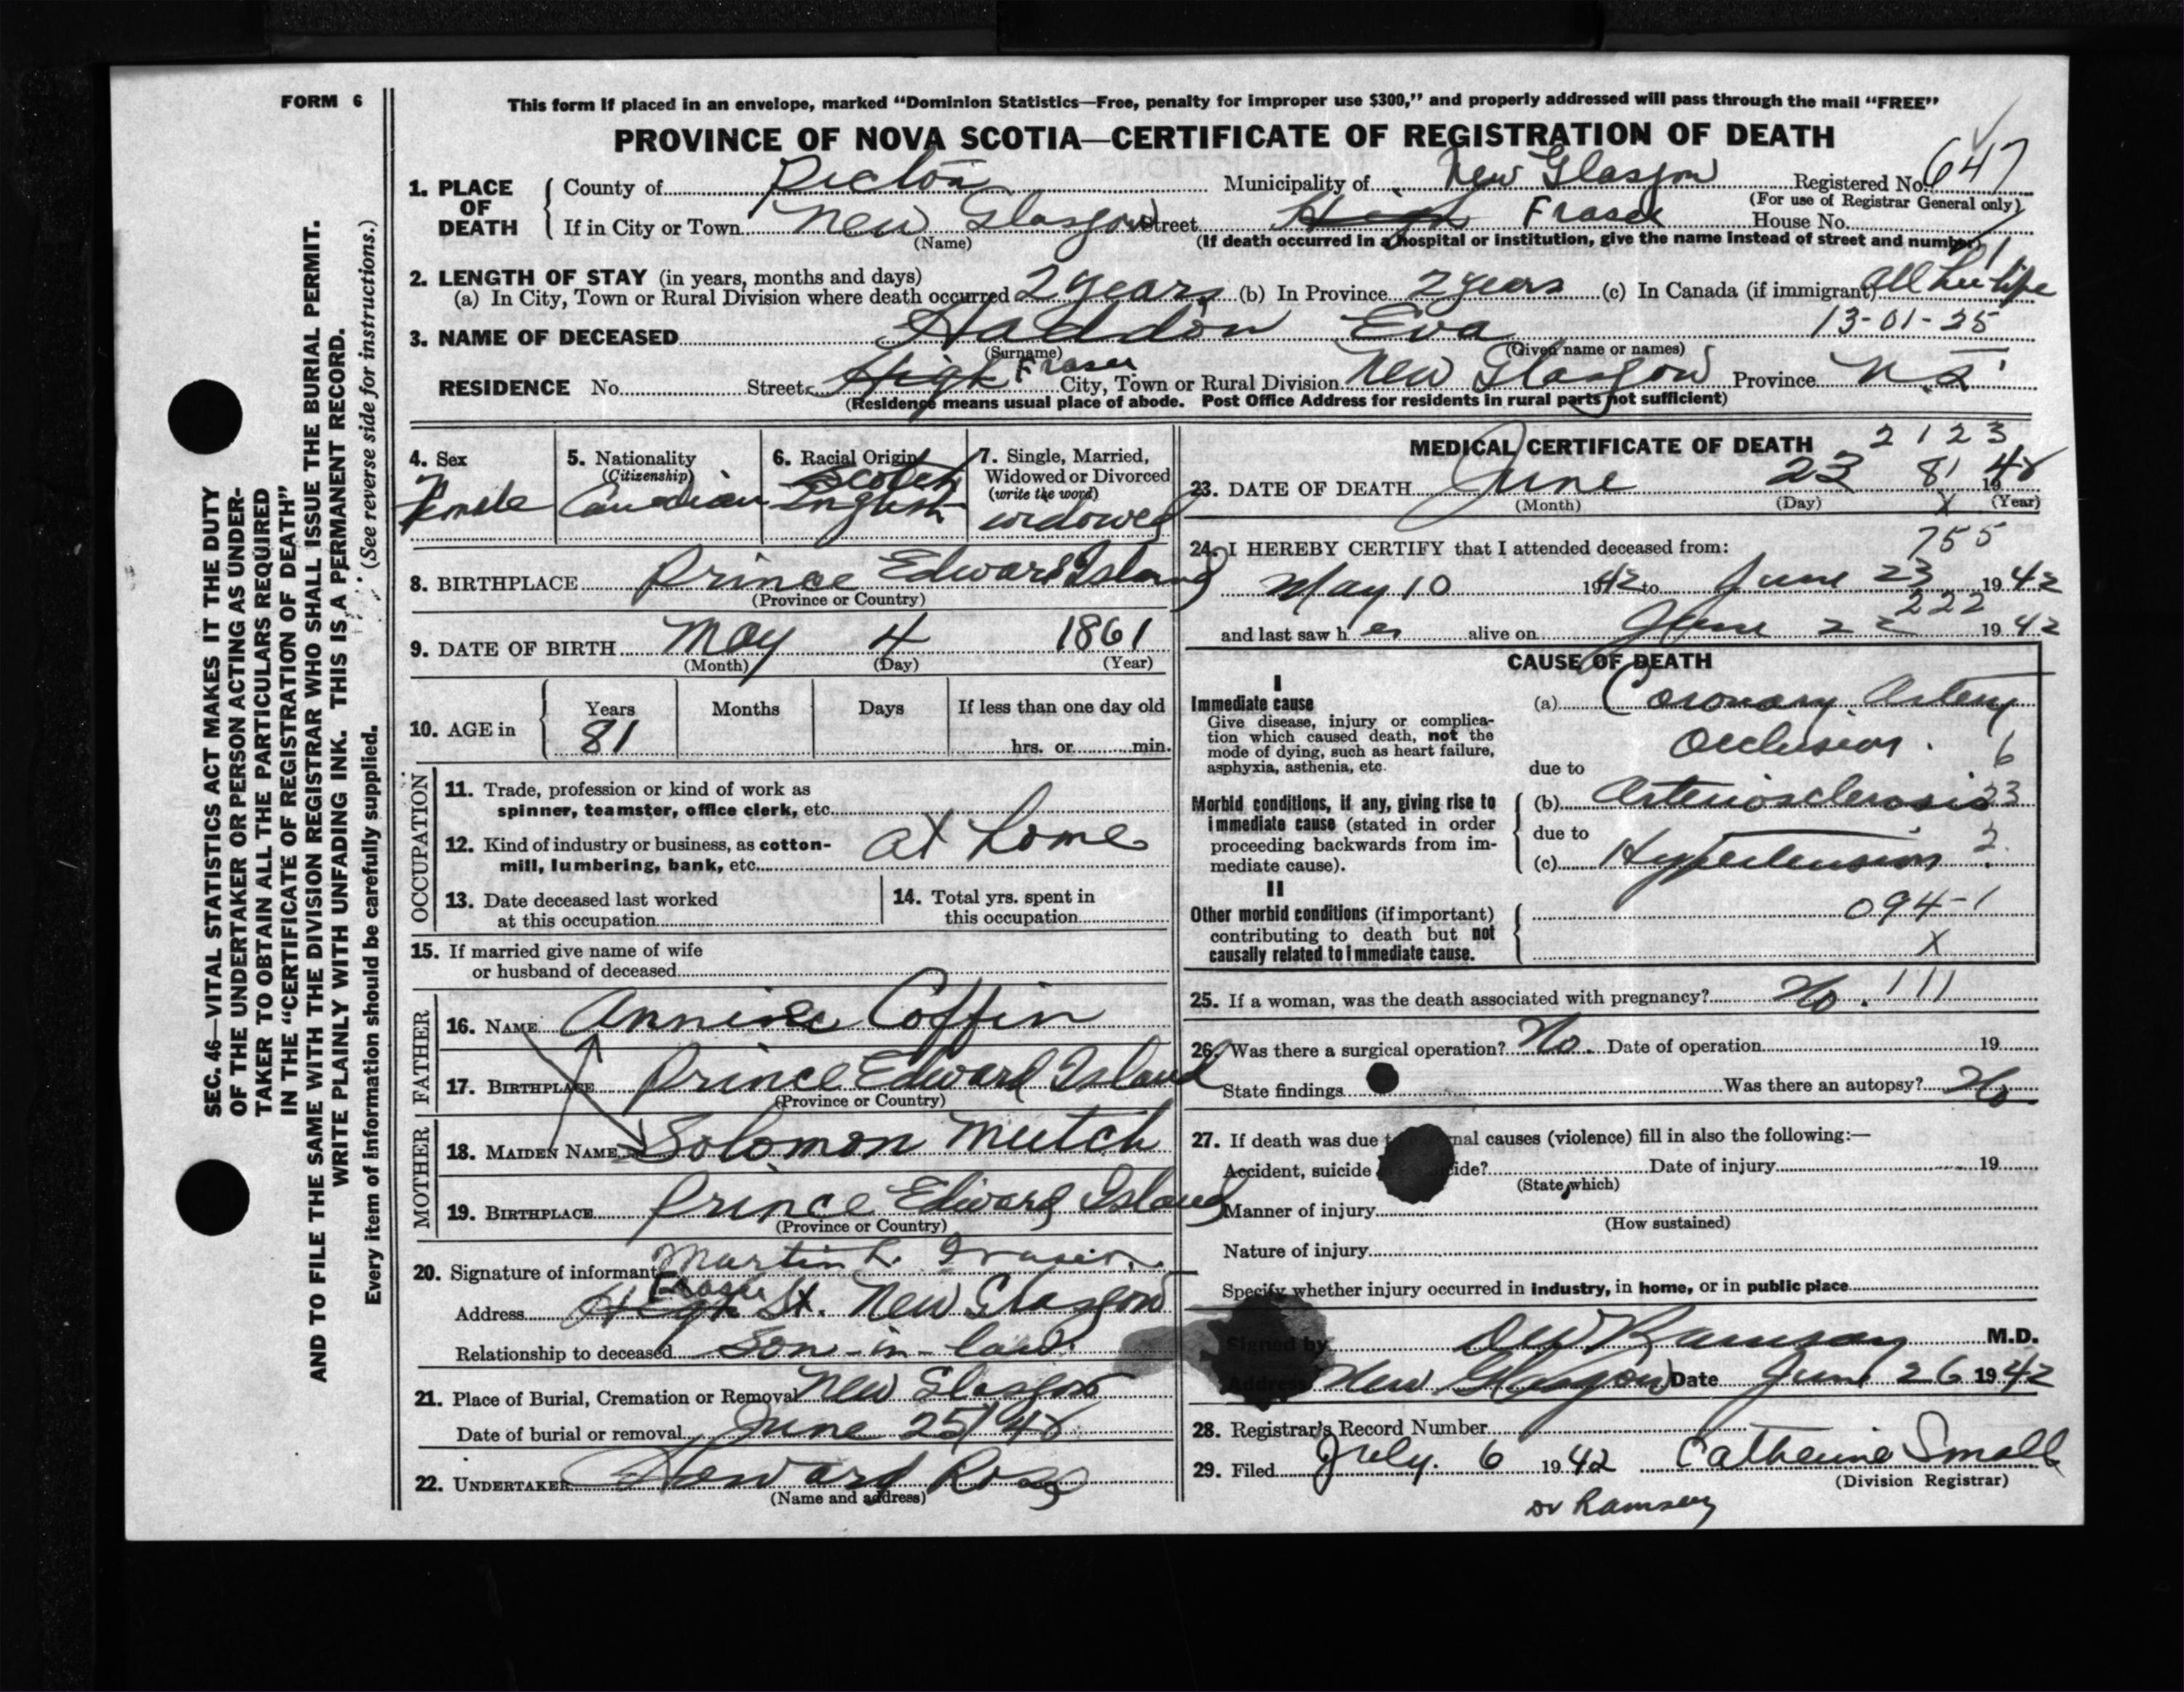 FORM 6
This form if placed in an envelope, marked “Dominion Statistics—Free, penalty for improper use $300,” and properly addressed will pass through the mail “FREE”
PROVINCE OF NOVA SCOTIA—CERTIFICATE OF REGISTRATION OF DEATH
1. PLACE OF DEATH County of Pictou Municipality of New Glasgow Registered No. 647
(For use of Registrar General only)
If in City or Town New Glasgow Street High Fraser House No.
(Name) (If death occurred in a hospital or institution, give the name instead of street and number)
2. LENGTH OF STAY (in years, months and days)
(a) In City, Town or Rural Division where death occurred 2 years (b) In Province 2 years (c) In Canada (if immigrant) all her life
3. NAME OF DECEASED Haddon Eva 13-01-25
(Surname) (Given name or names)
RESIDENCE No. Street High Fraser City, Town or Rural Division New Glasgow Province N.S.
(Residence means usual place of abode. Post Office Address for residents in rural parts not sufficient)
4. Sex Female
5. Nationality (Citizenship) Canadian
6. Racial Origin Scotch English
7. Single, Married, Widowed or Divorced (write the word) widowed
8. BIRTHPLACE Prince Edward Island
(Province or Country)
9. DATE OF BIRTH May 4 1861
(Month) (Day) (Year)
10. AGE in Years 81 Months Days If less than one day old hrs. or min.
OCCUPATION
11. Trade, profession or kind of work as spinner, teamster, office clerk, etc.
12. Kind of industry or business, as cotton-mill, lumbering, bank, etc. at home
13. Date deceased last worked at this occupation
14. Total yrs. spent in this occupation
15. If married give name of wife or husband of deceased
FATHER
16. NAME Annie Coffin
17. BIRTHPLACE Prince Edward Island
(Province or Country)
MOTHER
18. MAIDEN NAME Solomon Mutch
19. BIRTHPLACE Prince Edward Island
(Province or Country)
20. Signature of informant Martin L. Fraser
Address High Fraser St. New Glasgow
Relationship to deceased Son-in-law
21. Place of Burial, Cremation or Removal New Glasgow
Date of burial or removal June 25/42
22. UNDERTAKER Howard Rose
(Name and address)
MEDICAL CERTIFICATE OF DEATH 2123
23. DATE OF DEATH June 23 81 1942
(Month) (Day) X (Year)
24. I HEREBY CERTIFY that I attended deceased from: 755
May 10 1942 to June 23 1942
222
and last saw her alive on June 22 1942
CAUSE OF DEATH
I
Immediate cause
Give disease, injury or complication which caused death, not the mode of dying, such as heart failure, asphyxia, asthenia, etc.
(a) Coronary Artery
Occlusion. 6
due to
Morbid conditions, if any, giving rise to immediate cause (stated in order proceeding backwards from immediate cause).
(b) Arteriosclerosis 33
due to
(c) Hypertension 2.
II
Other morbid conditions (if important) contributing to death but not causally related to immediate cause.
094-1
X
25. If a woman, was the death associated with pregnancy? No. 111
26. Was there a surgical operation? No. Date of operation 19
State findings Was there an autopsy? No.
27. If death was due nal causes (violence) fill in also the following:—
Accident, suicide ide? Date of injury 19
(State which)
Manner of injury
(How sustained)
Nature of injury
Specify whether injury occurred in industry, in home, or in public place
Signed by DW Ramsay M.D.
Address New Glasgow Date June 26 1942
28. Registrar's Record Number
29. Filed July. 6 1942 Catherine Small
(Division Registrar)
Dr Ramsey
SEC. 46—VITAL STATISTICS ACT MAKES IT THE DUTY
OF THE UNDERTAKER OR PERSON ACTING AS UNDER-
TAKER TO OBTAIN ALL THE PARTICULARS REQUIRED
IN THE “CERTIFICATE OF REGISTRATION OF DEATH”
AND TO FILE THE SAME WITH THE DIVISION REGISTRAR WHO SHALL ISSUE THE BURIAL PERMIT.
WRITE PLAINLY WITH UNFADING INK. THIS IS A PERMANENT RECORD.
Every item of information should be carefully supplied. (See reverse side for instructions.)